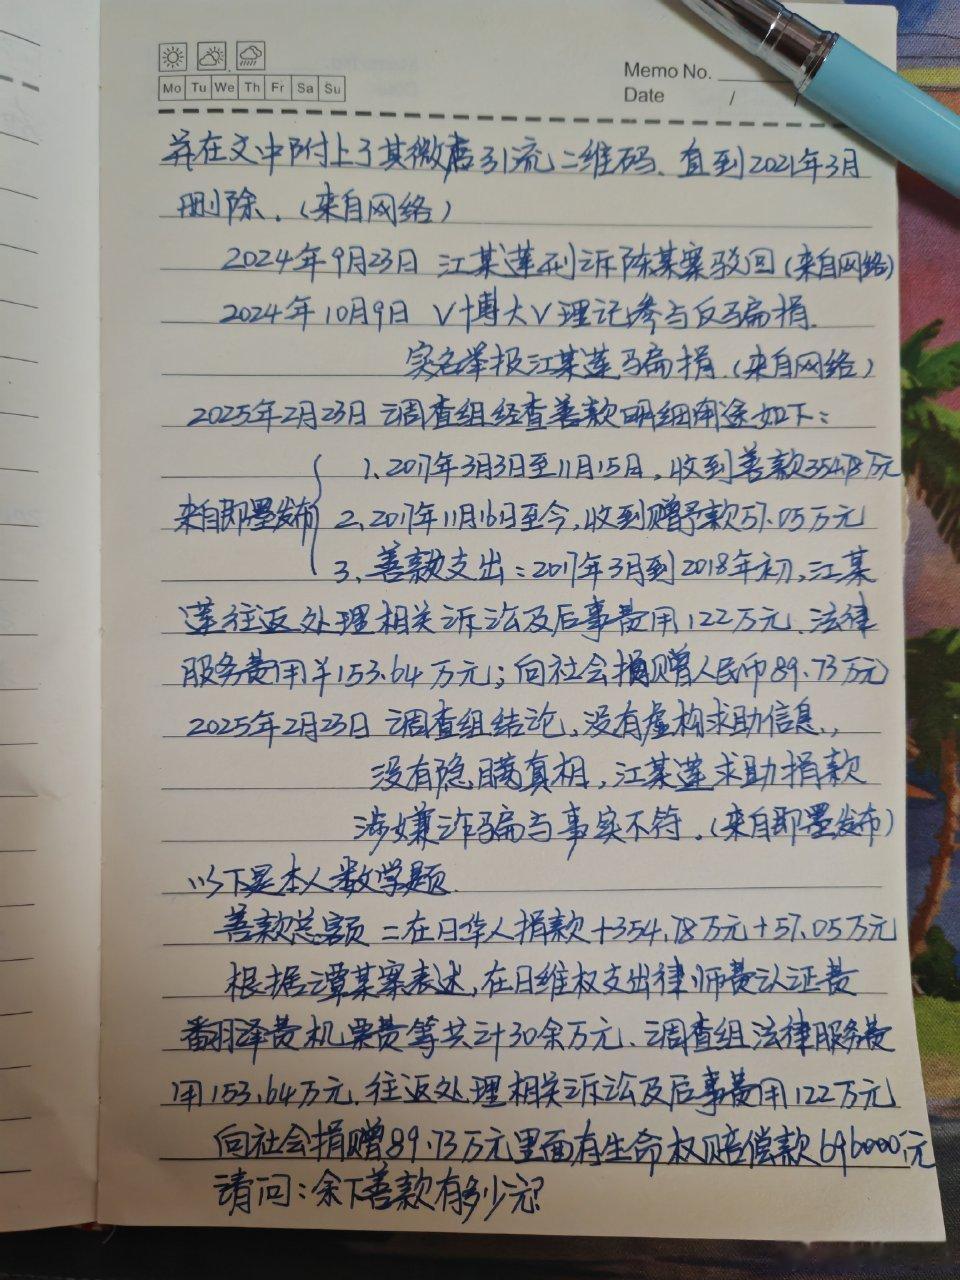 Memo No.
Mo Tu We Th Fr Sa Su
Date / /
并在文中附上了其微店引流二维码、直到2021年3月
删除.(来自网络)
2024年9月23日 江某莲刑诉陈某案驳回(来自网络)
2024年10月9日 V博大V理记参与反骗捐.
实名举报江某莲骗捐.(来自网络)
2025年2月23日 调查组经查善款明细用途如下:
1、2017年3月3日至11月15日,收到善款354.78万元
来自即墨发布 2、2017年11月16日至今,收到赠予款57.05万元
3、善款支出:2017年3月到2018年初,江某
莲往返处理相关诉讼及后事费用122万元、法律
服务费用¥153.64万元;向社会捐赠人民币89.73万元
2025年2月23日 调查组结论,没有虚构求助信息,
没有隐瞒真相,江某莲求助捐款
涉嫌诈骗与事实不符.(来自即墨发布)
以下是本人数学题.
善款总额=在日华人捐款+354.78万元+57.05万元
根据谭某案表述,在日维权支出律师费认证费
翻译费机票费等共计30余万元、调查组法律服务费
用153.64万元.往返处理相关诉讼及后事费用122万元
向社会捐赠89.73万元里面有生命权赔偿款696000元
请问:余下善款有多少元?